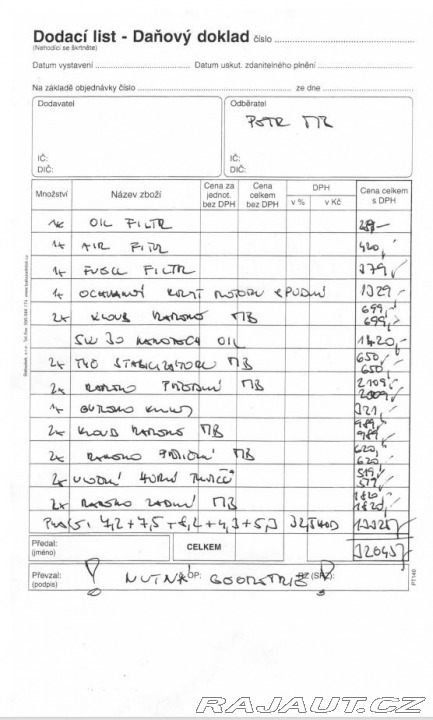 Dodací list - Daňový doklad číslo
(Nehodící se škrtněte)
Datum vystavení Datum uskut. zdanitelného plnění
Na základě objednávky číslo ze dne
Dodavatel Odběratel
PETR MB
IČ: IČ:
DIČ: DIČ:
Množství Název zboží Cena za jednot. bez DPH Cena celkem bez DPH DPH v % v Kč Cena celkem s DPH
1x OIL FILTR
1x AIR FILTR 420,-
1x FUSEL FILTR 379,-
1x OCHRANNÝ KRYT MOTORU SPODNÍ 1329,-
2x KLOUB RAMENO MB 699,- 699,-
5W30 OIL 1420,-
2x TYČ STABILIZATORU MB 650,- 650,-
2x RAMENO PŘEDNÍ MB 2109,- 2009,-
1x 321,-
2x KLOUB RAMENO MB 989,- 989,-
2x RAMENO MB 620,- 620,-
2x 519,- 519,-
2x RAMENO ZADNÍ MB 1820,- 1820,-
7,2+7,5+8,2+4,3+5,3 32,5HOD 13325,-
Předal:
(jméno)
CELKEM 32045,-
Převzal:
(podpis)
! NUTNÁ GEOMETRIE !
OP: RZ (SPZ):
PT140
RAJAUT.CZ